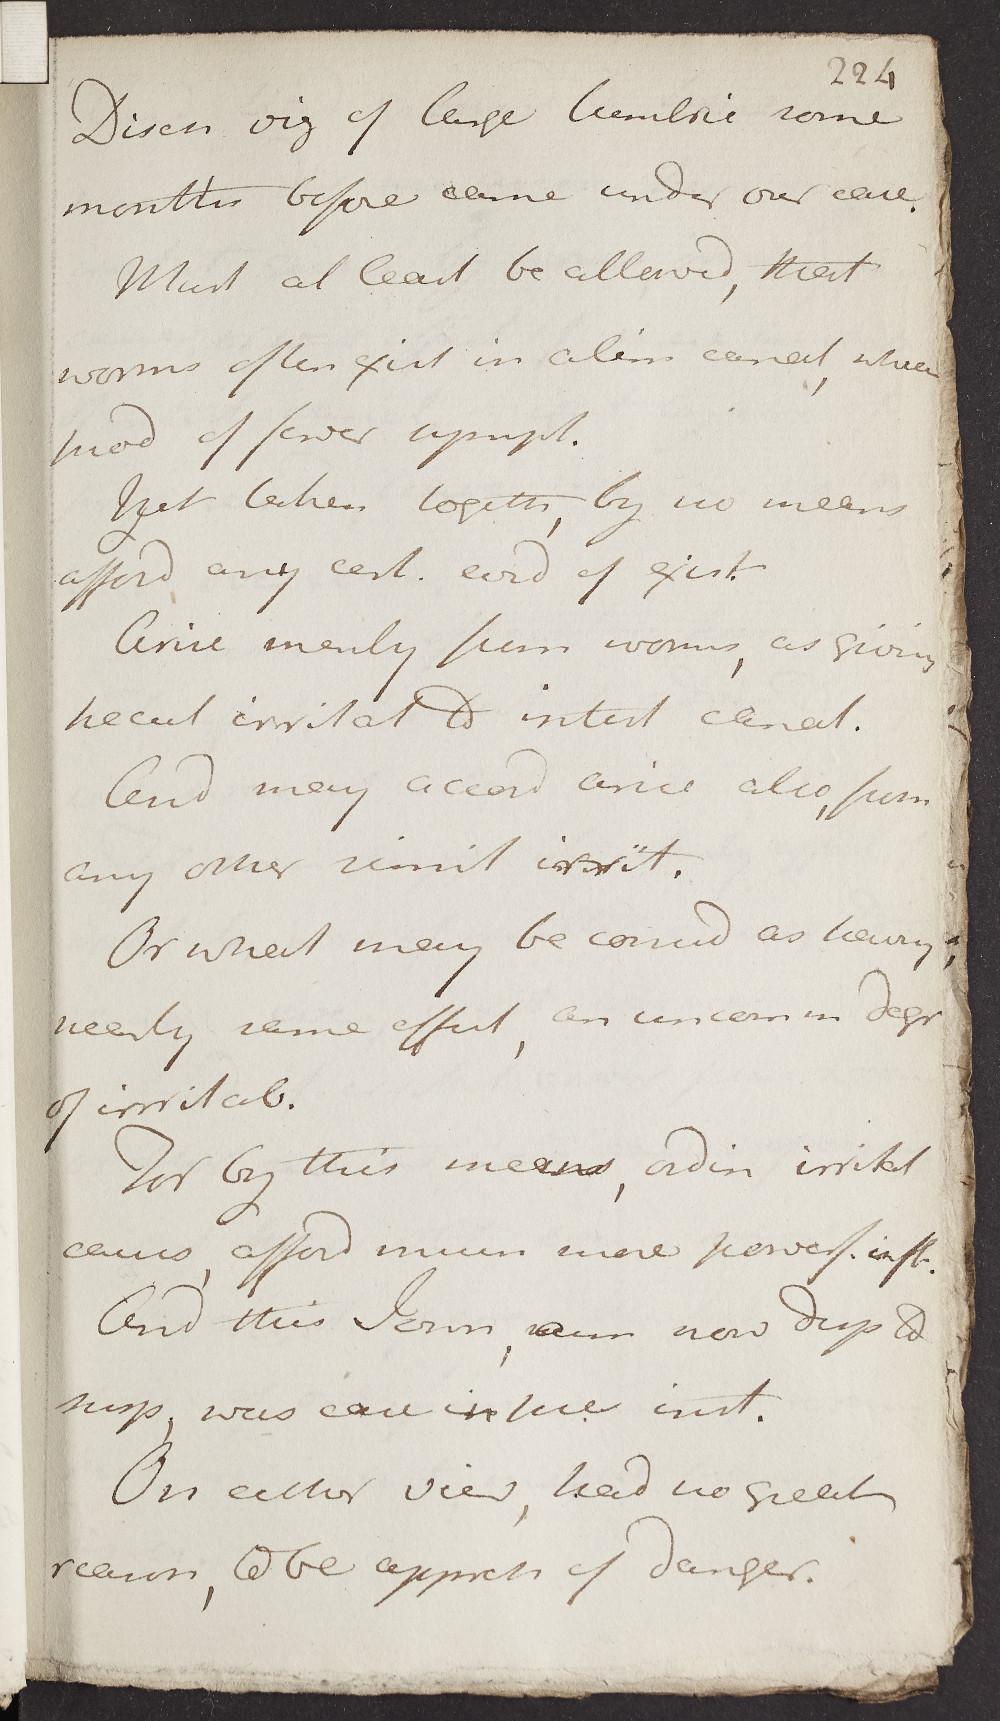 224
Disch viz of large lumbrici some
months before came under our care.
Must at least be allowed, that
worms often exist in alim canal, when
prod of fewer sympt.
Yet taken togeth, by no means
afford any cert. evid of exist.
Arise meerly from worms, as giving
irritat to intest canal.
And may accord arise also, from
any other simil irrit.
Or what may be consid as having,
nearly same effect, an uncomm degr
of irritab.
For by this means, ordin irritat
caus, afford much more powerf. infl.
And this I own, am now disp to
susp, was case in pres inst.
On either view, had no great
reason, to be appreh of danger.